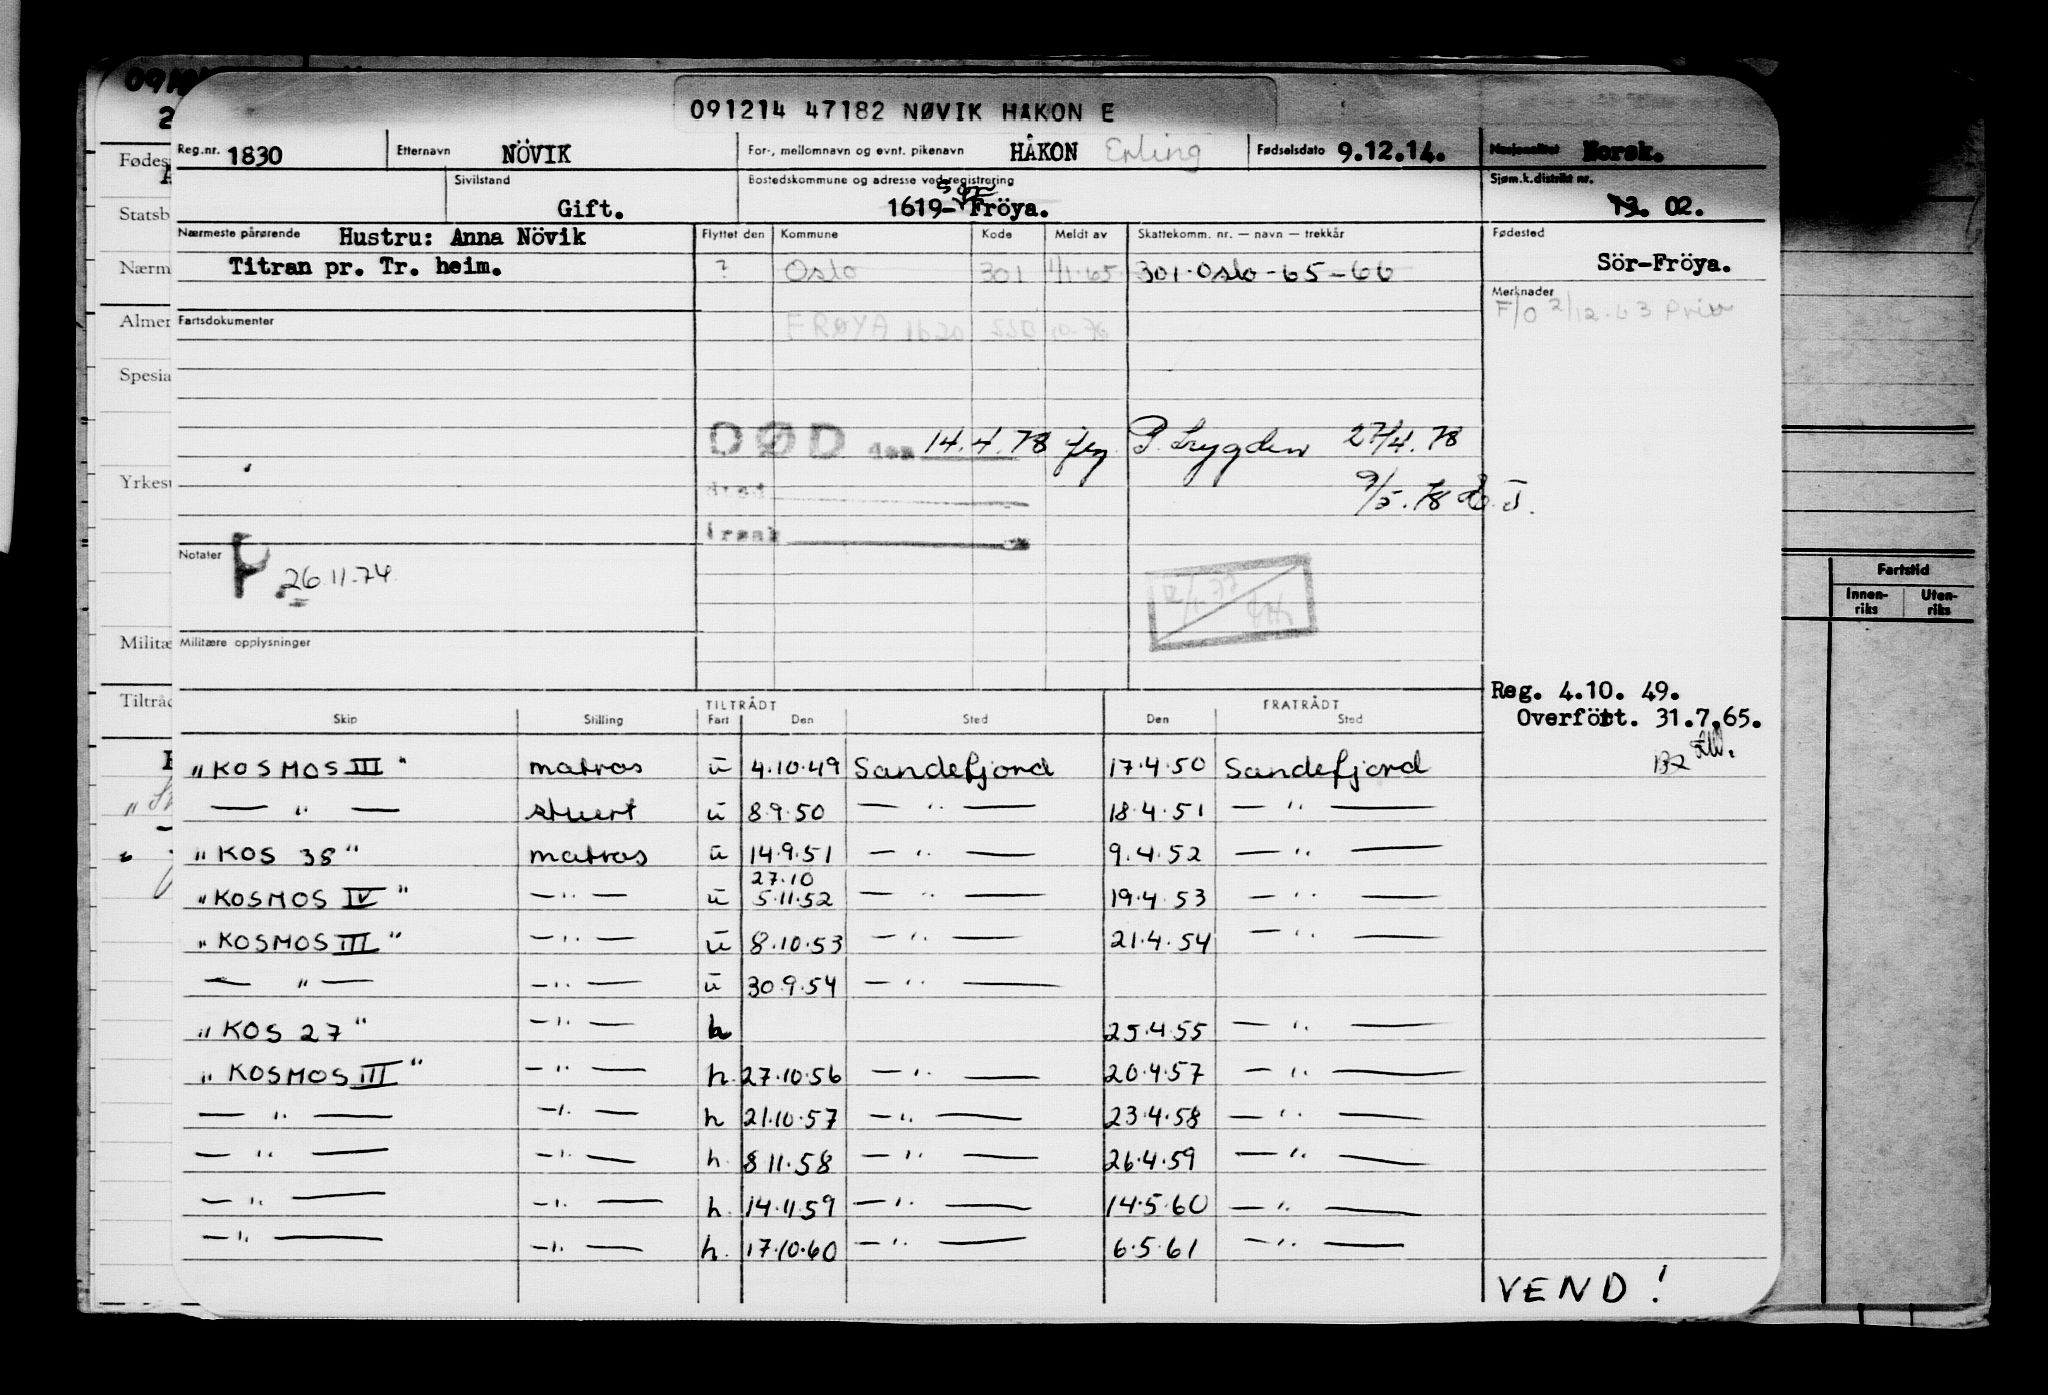 091214 47182 NØVIK HAKON E
Reg.nr. 1830 Etternavn NÖVIK For-, mellomnavn og evnt. pikenavn HÅKON Erling Fødselsdato 9.12.14. Nasjonalitet Norsk.
Sivilstand Gift. Bostedskommune og adresse ved registrering 1619- Fröya. Sjøm.k.distrikt nr. 13. 02.
Nærmeste pårørende Hustru: Anna Növik Flyttet den Kommune Kode Meldt av Skattekomm. nr. — navn — trekkår Fødested
Titran pr. Tr. heim. ? Oslo 301 1/1-65 301-Oslo-65-66 Sör-Fröya.
Merknader
F/O 2/12-63 Priv
Fartsdokumenter FRØYA 1620 SSB 10-76
DØD den 14.4.78 27/4.78
sted 9/5.78
årsak
Notater 26.11.74.
Militære opplysninger
Reg. 4.10. 49.
Overfört. 31.7.65.
TILTRÅDT FRATRÅDT
Skip Stilling Fart Den Sted Den Sted
"KOSMOS III" matros u 4.10.49 Sandefjord 17.4.50 Sandefjord
— " — stuert u 8.9.50 — " — 18.4.51 — " —
"KOS 38" matros u 14.9.51 — " — 9.4.52 — " —
27.10
"KOSMOS IV" — " — u 5.11.52 — " — 19.4.53 — " —
"KOSMOS III" — " — u 8.10.53 — " — 21.4.54 — " —
— " — — " — u 30.9.54 — " —
"KOS 27" — " — h 25.4.55 — " —
"KOSMOS III" — " — h. 27.10.56 — " — 20.4.57 — " —
— " — — " — h 21.10.57 — " — 23.4.58 — " —
— " — — " — h. 8.11.58 — " — 26.4.59 — " —
— " — — " — h. 14.11.59 — " — 14.5.60 — " —
— " — — " — h. 17.10.60 — " — 6.5.61 — " —
VEND!
Fartstid
Innen-riks Uten-riks